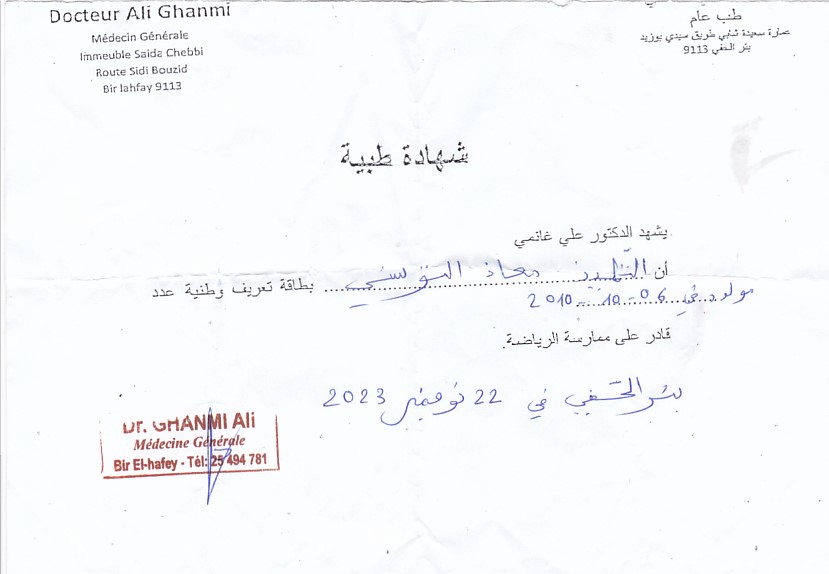 Docteur Ali Ghanmi
Médecin Générale
Immeuble Saida Chebbi
Route Sidi Bouzid
Bir lahfay 9113
طب عام
عمارة سعيدة شابي طريق سيدي بوزيد
بئر الحفي 9113
شهادة طبية
يشهد الدكتور علي غانمي
أن التلميذ معاذ التونسي بطاقة تعريف وطنية عدد
مولود في 06 - 10 - 2010
قادر على ممارسة الرياضة.
بئر الحفي في 22 نوفمبر 2023
Dr. GHANMI Ali
Médecine Générale
Bir El-hafey - Tél: 25 494 781